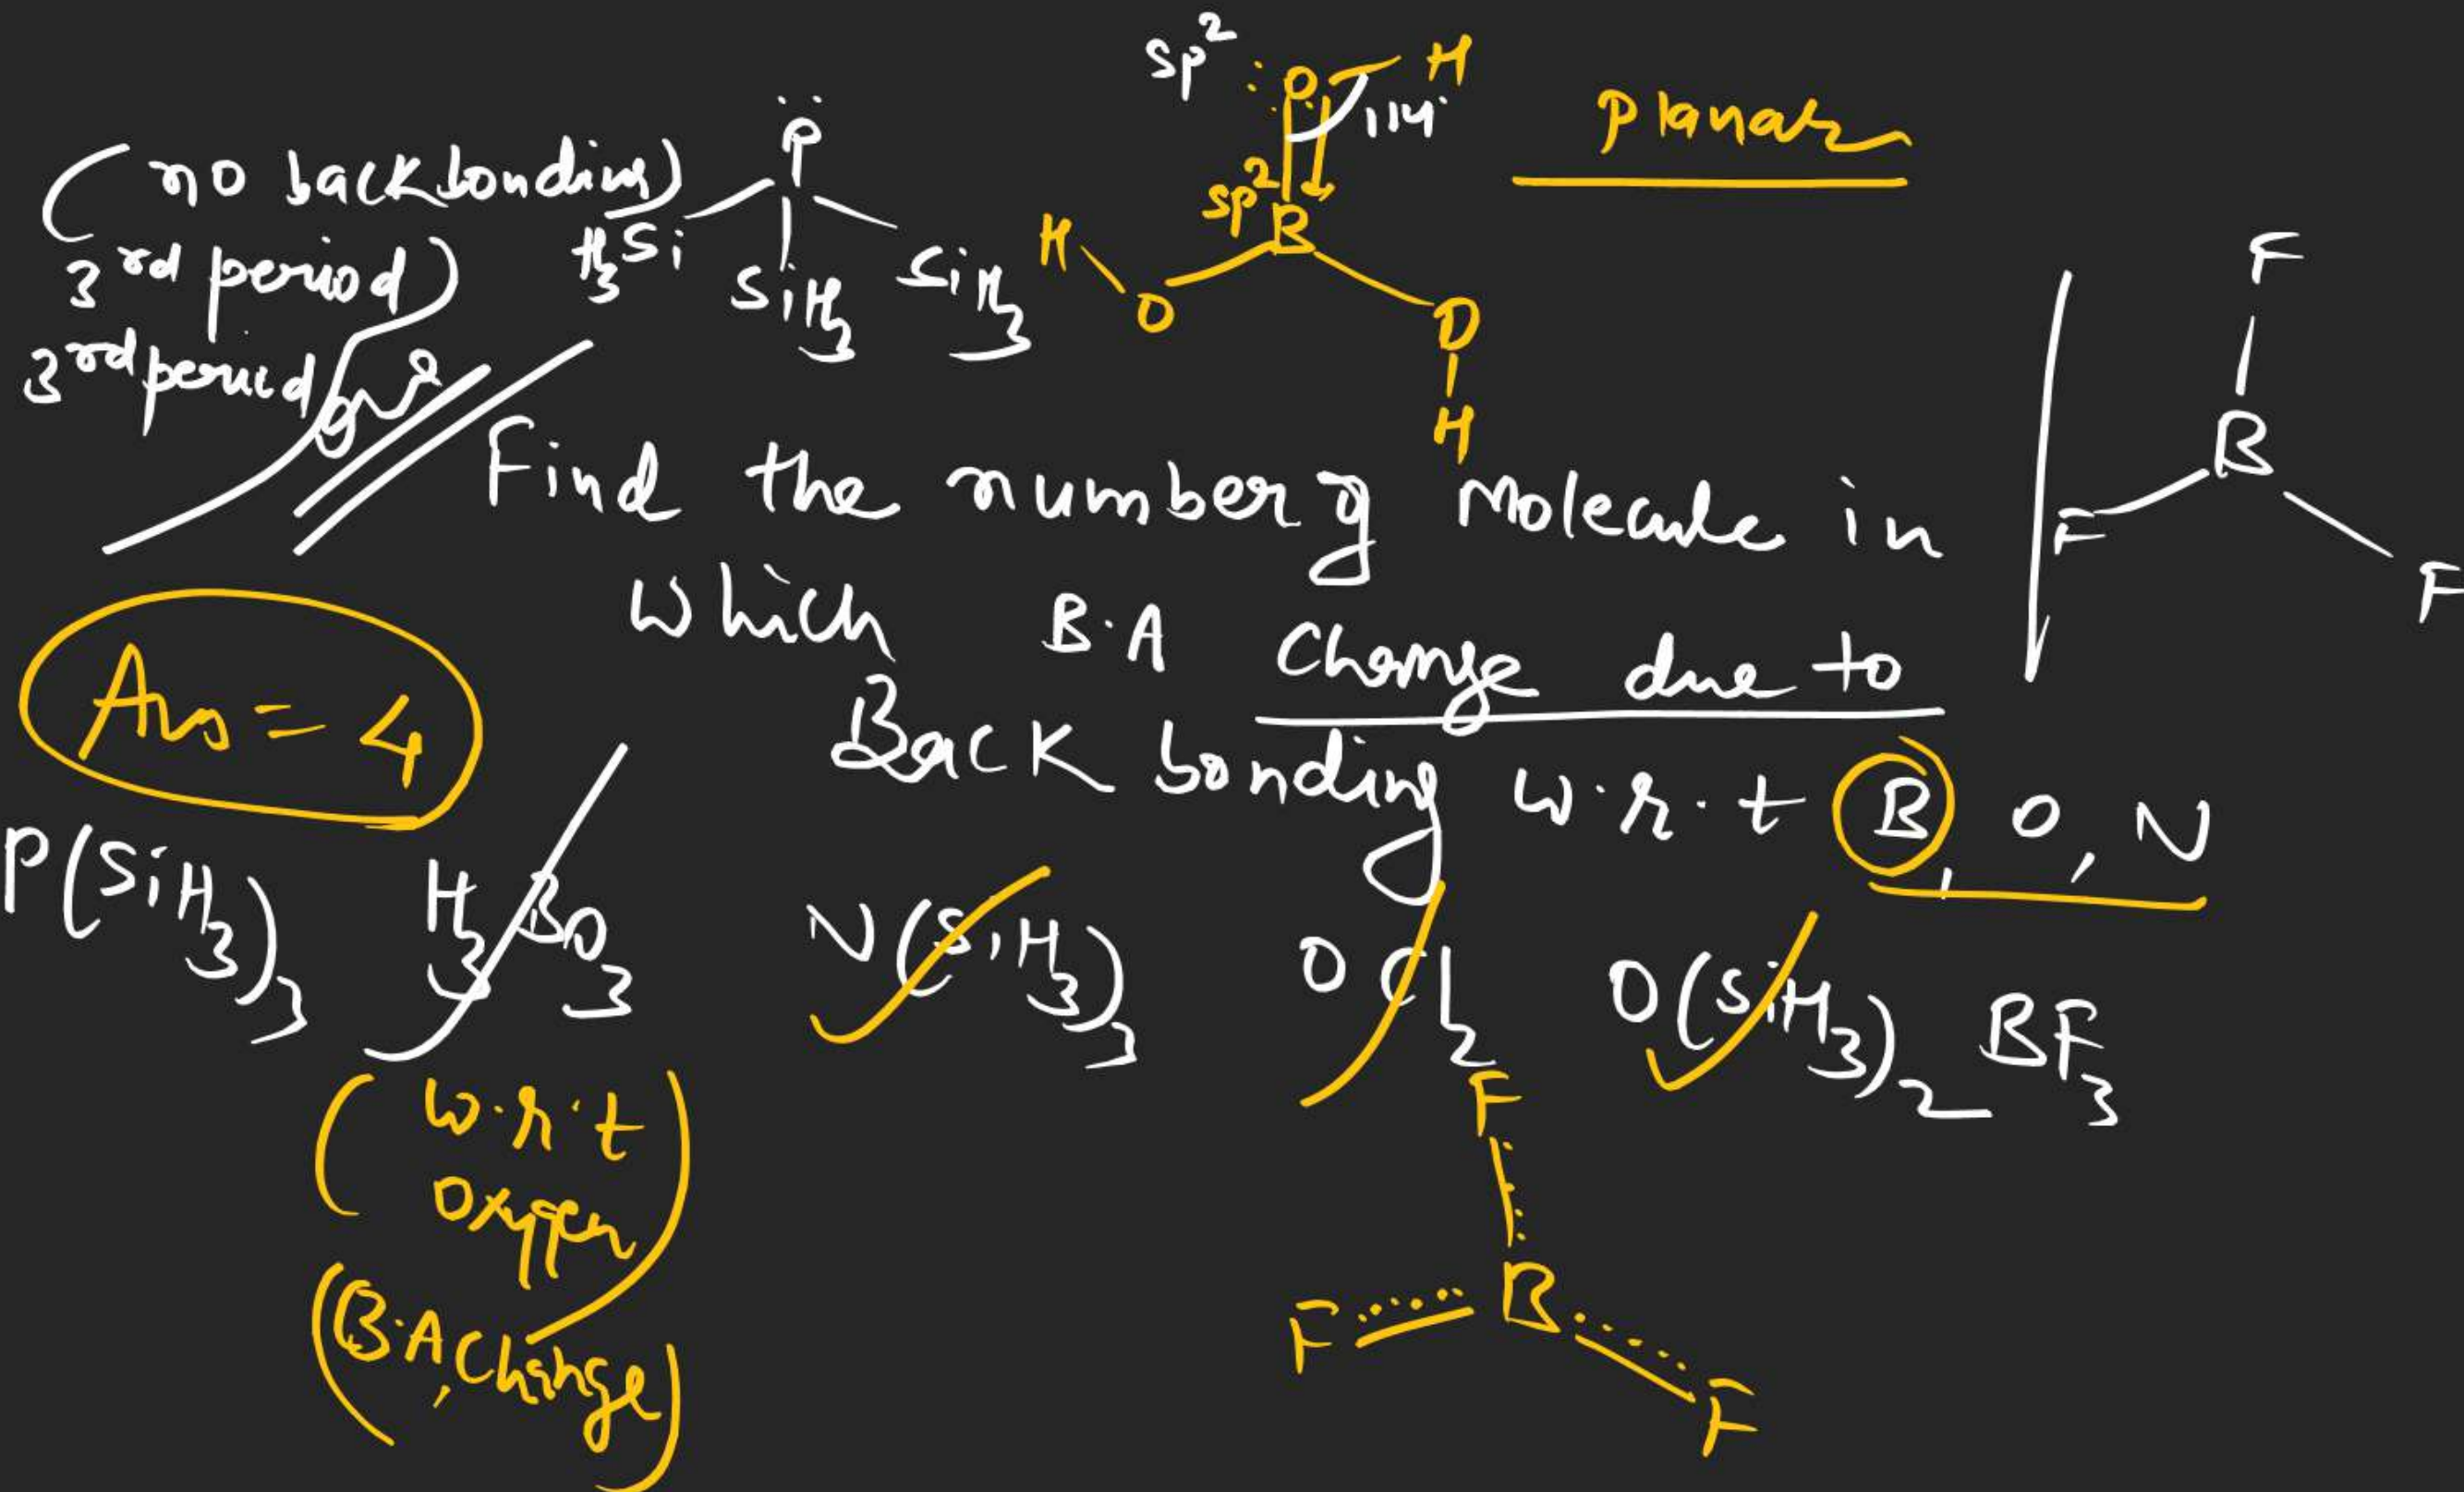 (no backbonding)
3rd period)
3rd period
P
H3Si
SiH3
SiH3
sp2
O
H
114°
sp2
B
H
O
O
H
Planar
F
B
F
F
Find the number of Molecule in
which B.A change due to
Back bonding w.r.t B, O, N
Ans = 4
P(SiH3)3 H3BO3 N(SiH3)3 OCl2 O(SiH3)2 BF3
(w.r.t
oxygen)
(B.A, Change)
F
B
F
F